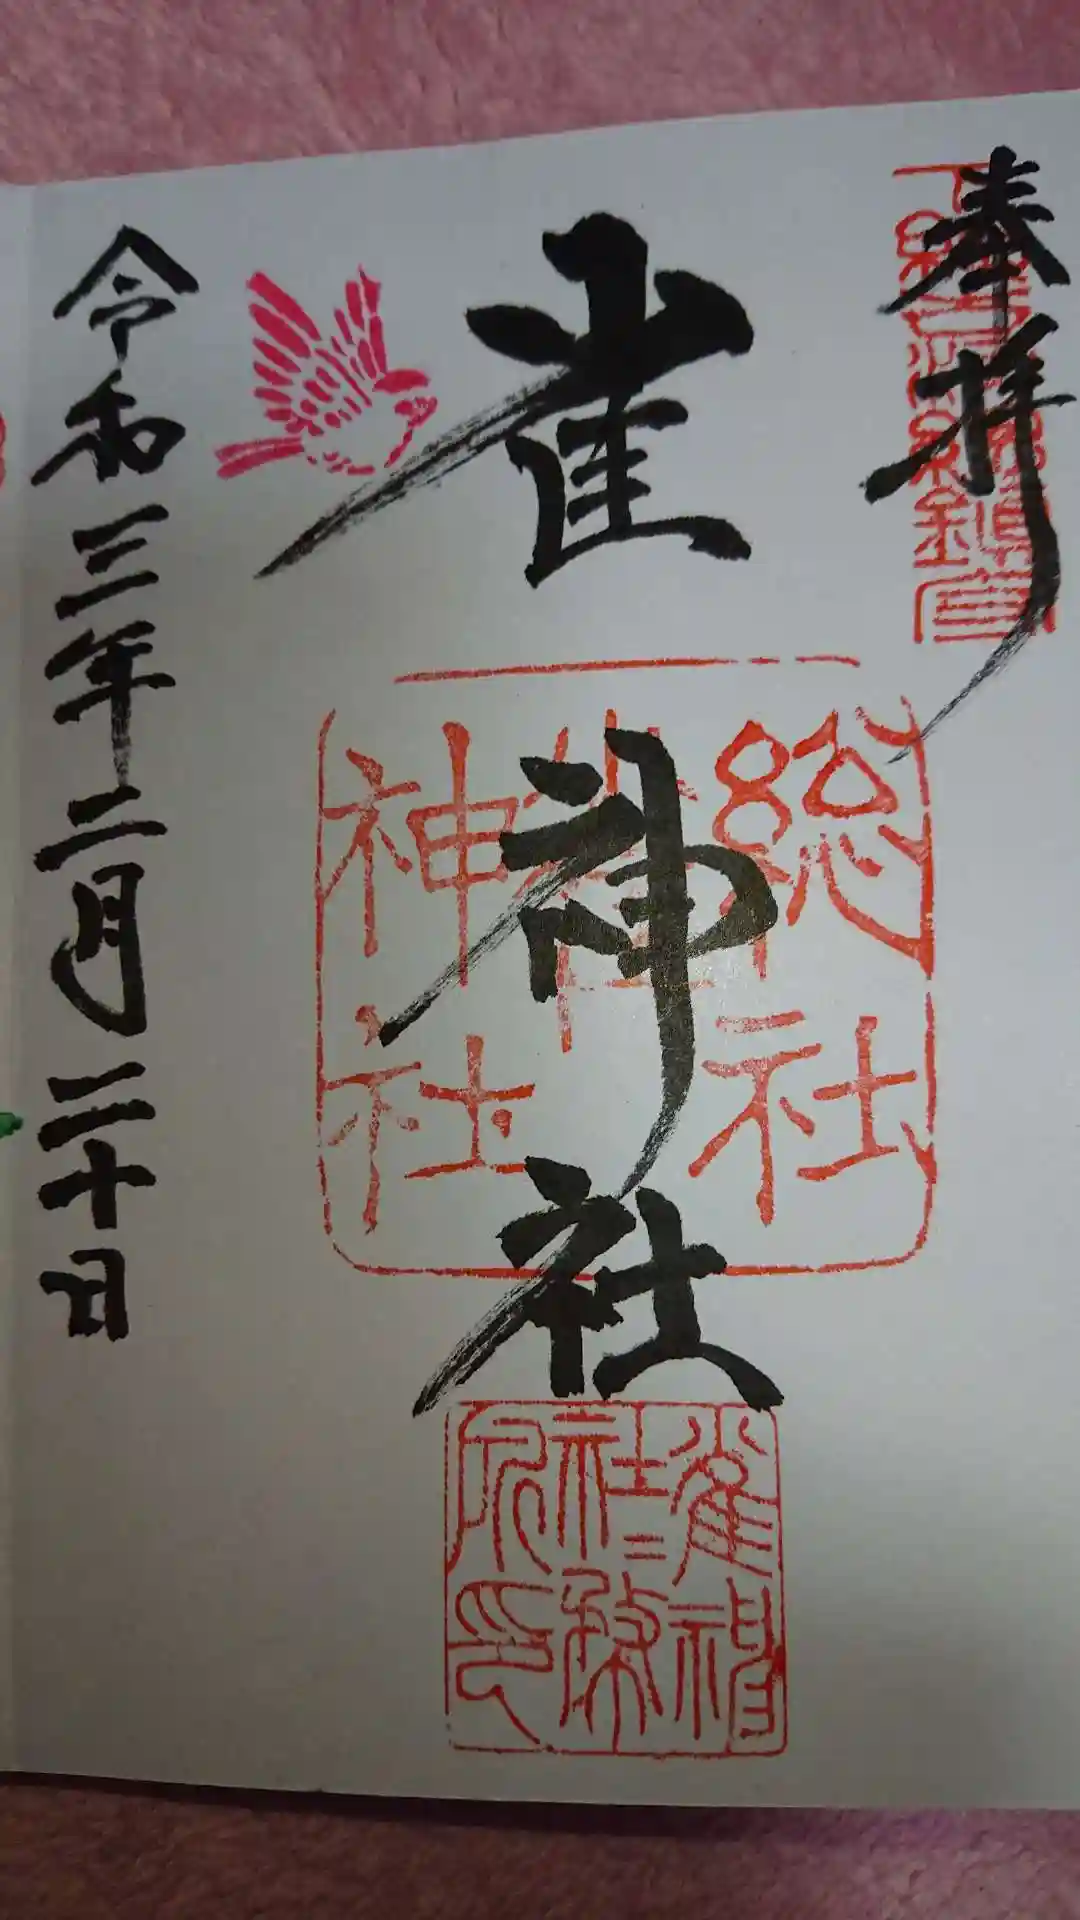 奉拝
雀神社
総社
雀
神社
雀神
社社務
所印
令和三年二月二十日